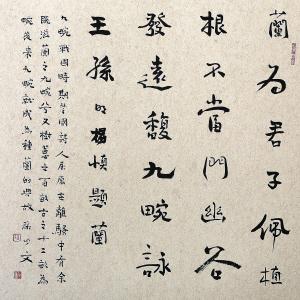 蘭為君子佩植
根不當門幽谷
發遠馥九畹詠
王孫 明楊慎題蘭
九畹戰國時期楚國詩人屈原在離騷中有余
既滋蘭之九畹兮又樹蕙之百畝古之十二畝為
畹後來九畹就成為種蘭的典故